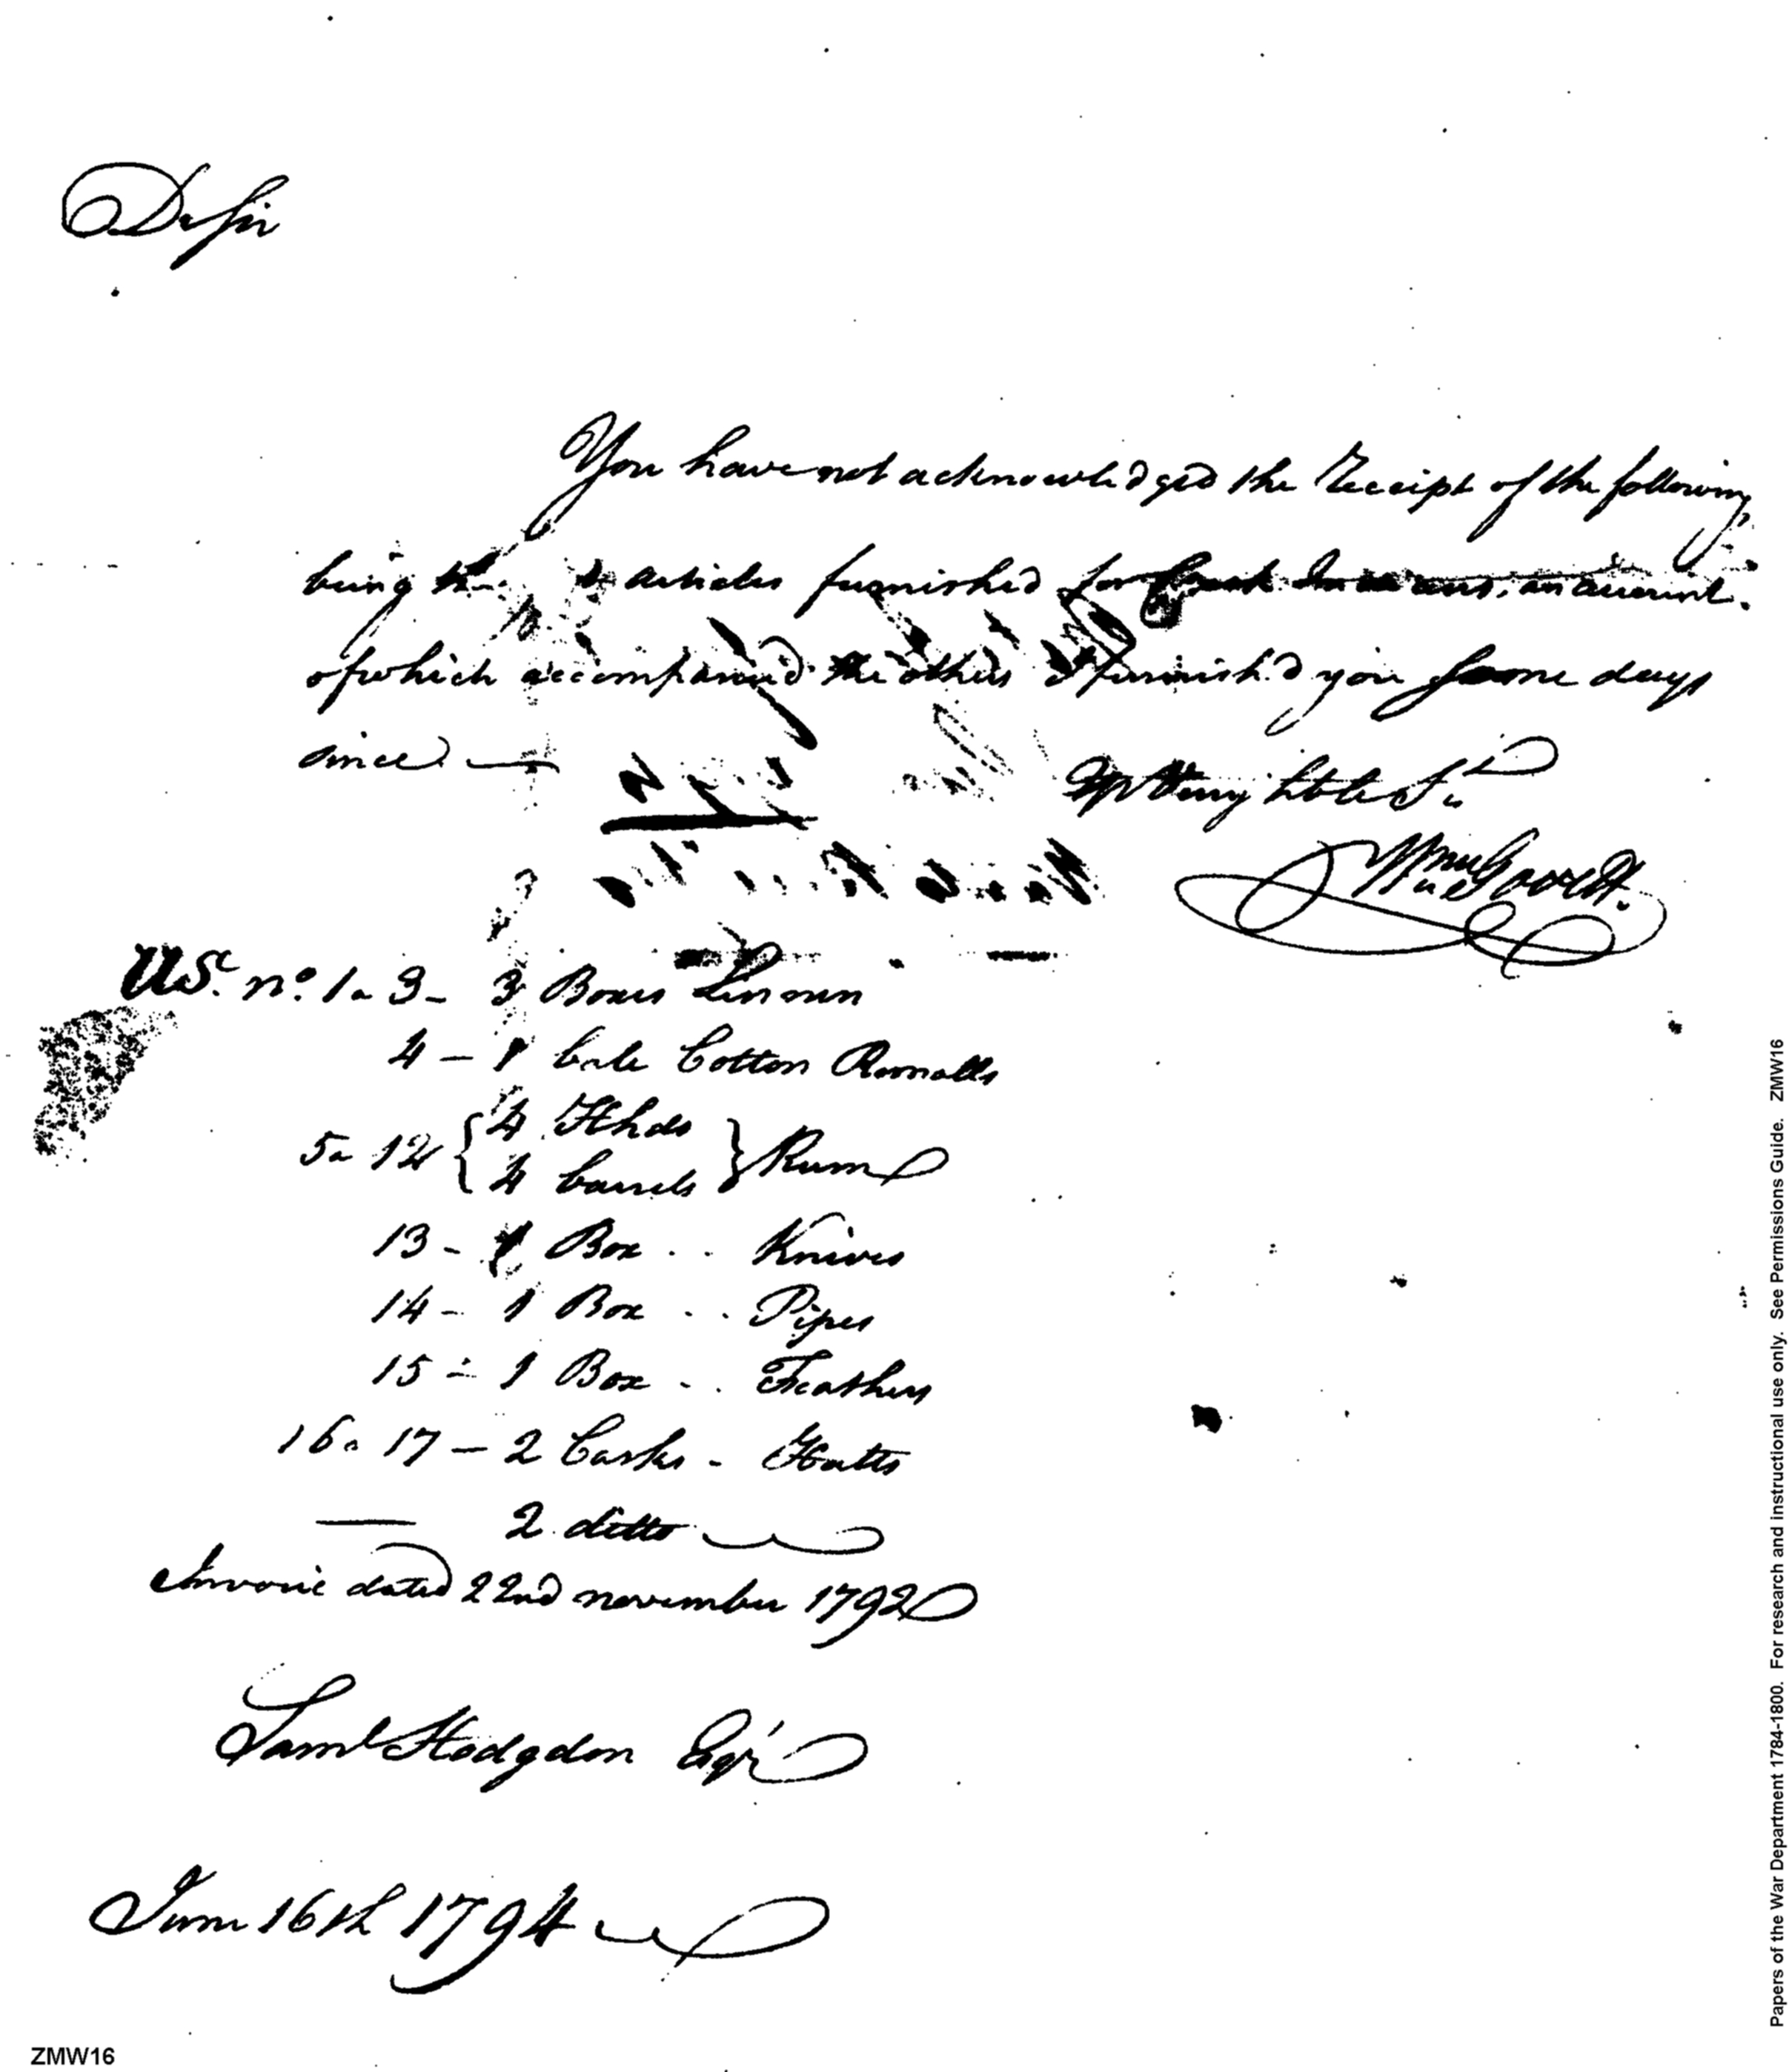 Dr Sir
You have not acknowledged the Receipt of the following,
being the articles furnished for an account
of which accompanied the others I furnish'd you some days
since —
Yr Very hble St
US. no. 1 a 3 - 3 Boxes Linnen
4 - 1 bale Cotton Romalls
5 a 12 { 4 Hhds
4 barrels } Rum
13 - 1 Box .. Knives
14 - 1 Box .. Pipes
15 - 1 Box .. Feathers
16 a 17 - 2 Casks - Hatts
— 2 ditto
Invoice dated 22nd november 1792
Saml Hodgdon Esqr
June 16th 1794
ZMW16
Papers of the War Department 1784-1800. For research and instructional use only. See Permissions Guide. ZMW16